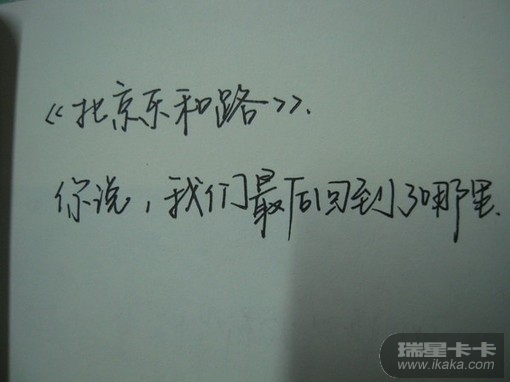 《北京乐和路》.
你说，我们最后回到了哪里.
瑞星卡卡
www.ikaka.com